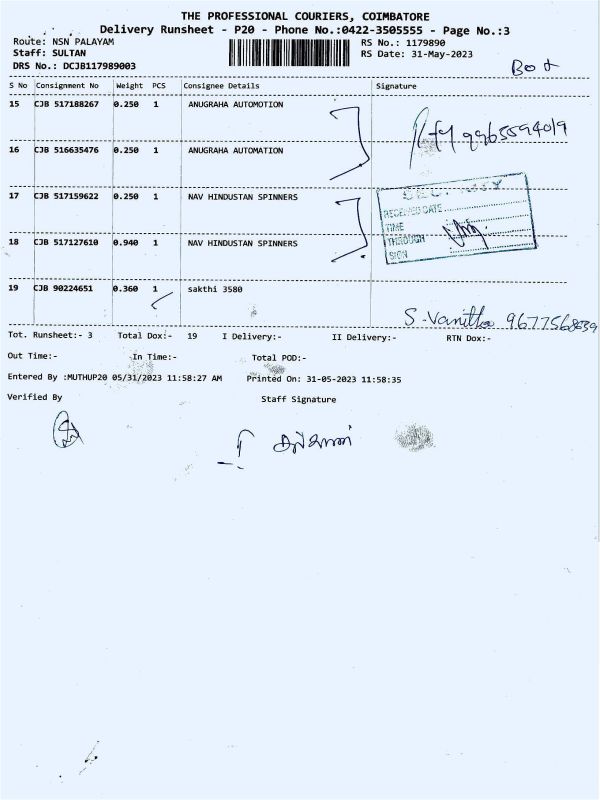 THE PROFESSIONAL COURIERS, COIMBATORE
Delivery Runsheet - P20 - Phone No.:0422-3505555 - Page No.:3
Route: NSN PALAYAM RS No.: 1179890
Staff: SULTAN RS Date: 31-May-2023
DRS No.: DCJB117989003
S No Consignment No Weight PCS Consignee Details Signature
15 CJB 517188267 0.250 1 ANUGRAHA AUTOMOTION
9965594019
16 CJB 516635476 0.250 1 ANUGRAHA AUTOMATION
17 CJB 517159622 0.250 1 NAV HINDUSTAN SPINNERS
RECEIVED DATE
TIME
THROUGH
SIGN
18 CJB 517127610 0.940 1 NAV HINDUSTAN SPINNERS
19 CJB 90224651 0.360 1 sakthi 3580
S.Vanitha 9677568039
Tot. Runsheet:- 3 Total Dox:- 19 I Delivery:- II Delivery:- RTN Dox:-
Out Time:- In Time:- Total POD:-
Entered By :MUTHUP20 05/31/2023 11:58:27 AM Printed On: 31-05-2023 11:58:35
Verified By Staff Signature